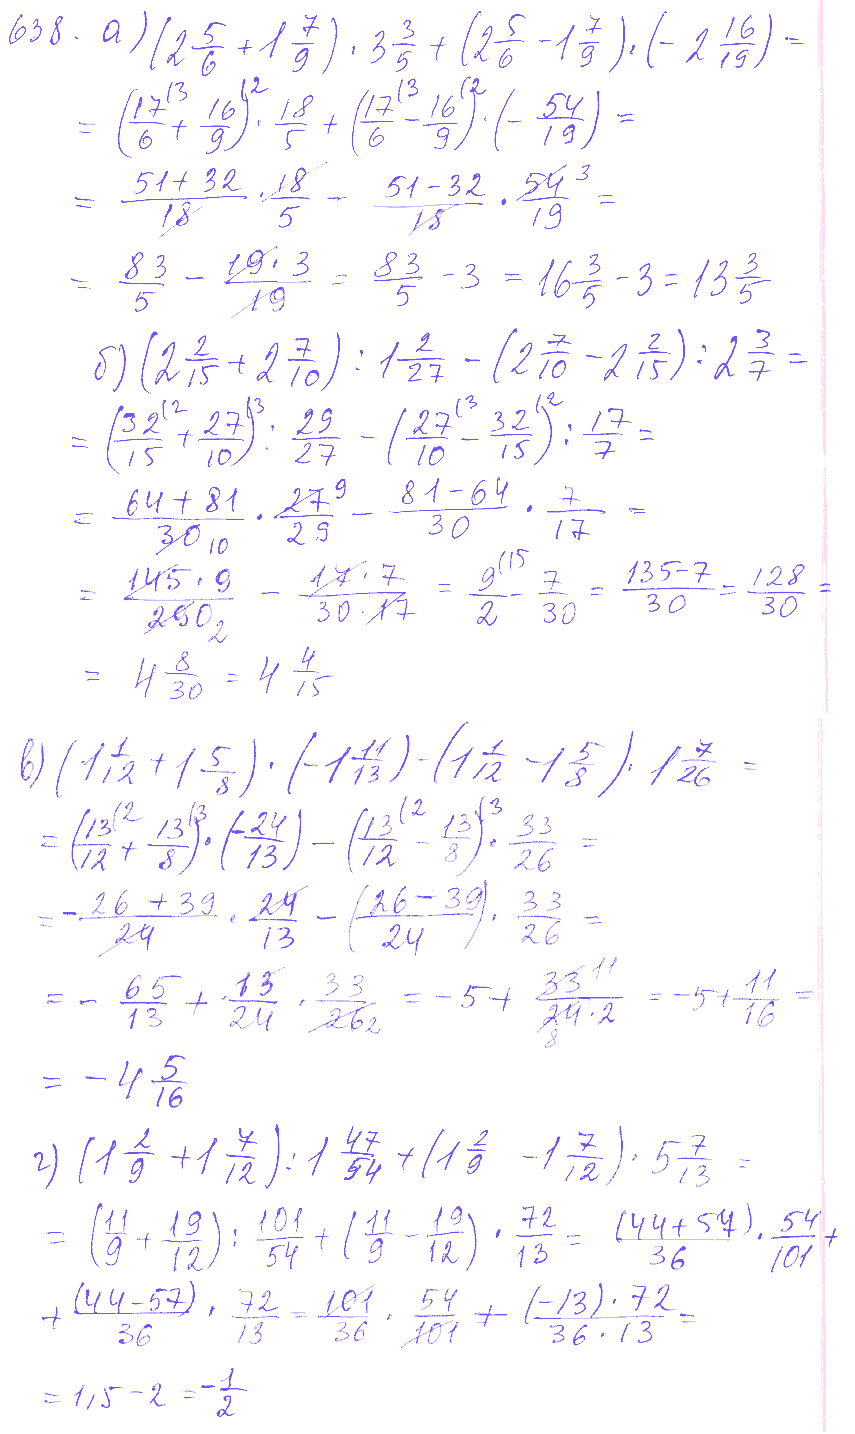 638. а) (2 5/6 + 1 7/9) · 3 3/5 + (2 5/6 - 1 7/9) · (- 2 16/19) =
= (17/6 (3 + 16/9 (2) · 18/5 + (17/6 (3 - 16/9 (2) · (- 54/19) =
= 51+32/18 · 18/5 - 51-32/18 · 54 3/19 =
= 83/5 - 19·3/19 = 83/5 - 3 = 16 3/5 - 3 = 13 3/5
б) (2 2/15 + 2 7/10) : 1 2/27 - (2 7/10 - 2 2/15) : 2 3/7 =
= (32/15 (2 + 27/10 (3) : 29/27 - (27/10 (3 - 32/15 (2) : 17/7 =
= 64+81/30 10 · 27 9/29 - 81-64/30 · 7/17 =
= 145·9/290 2 - 17·7/30·17 = 9/2 (15 - 7/30 = 135-7/30 = 128/30 =
= 4 8/30 = 4 4/15
в) (1 1/12 + 1 5/8) · (-1 11/13) - (1 1/12 - 1 5/8) · 1 7/26 =
= (13/12 (2 + 13/8 (3) · (-24/13) - (13/12 (2 - 13/8 (3) · 33/26 =
= - 26+39/24 · 24/13 - (26-39)/24 · 33/26 =
= - 65/13 + 13/24 · 33/26 2 = -5 + 33 11/24·2 8 = -5 + 11/16 =
= - 4 5/16
г) (1 2/9 + 1 7/12) : 1 47/54 + (1 2/9 - 1 7/12) · 5 7/13 =
= (11/9 + 19/12) : 101/54 + (11/9 - 19/12) · 72/13 = (44+57)/36 · 54/101 +
+ (44-57)/36 · 72/13 = 101/36 · 54/101 + (-13)·72/36·13 =
= 1,5 - 2 = - 1/2